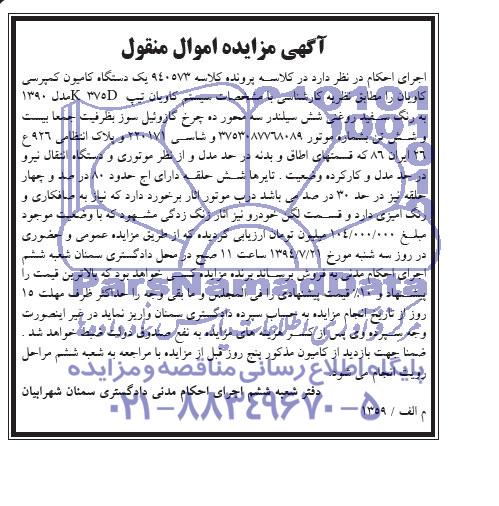 آگهی مزایده اموال منقول
اجرای احکام در نظر دارد در کلاسه پرونده کلاسه ۹۴۰۵۷۳ یک دستگاه کامیون کمپرسی
کاویان را مطابق نظریه کارشناسی با مشخصات سیستم کاویان تیپ K۳۷۵D مدل ۱۳۹۰
به رنگ سفید روغنی شش سیلندر سه محور ده چرخ گازوئیل سوز بظرفیت جمعا بیست
و شش تن بشماره موتور ۳۷۵۳۰۸۷۷۶۸۰۸۹ و شاسی ۲۲۰۱۷۱ و پلاک انتظامی ۹۲۶ ع
۲۶ ایران ۸۶ که قسمتهای اطاق و بدنه در حد مدل و از نظر موتوری و دستگاه انتقال نیرو
در حد مدل و کارکرده وضعیت . تایرها شش حلقه دارای اج حدود ۸۰ در صد و چهار
حلقه نیز در حد ۳۰ در صد می باشد درب موتور اثار برخورد دارد که نیاز به صافکاری و
رنگ امیزی دارد و قسمت لگن خودرو نیز اثار زنگ زدگی مشهود که با وضعیت موجود
مبلغ ۱۰۴/۰۰۰/۰۰۰ میلیون تومان ارزیابی گردیده که از طریق مزایده عمومی و حضوری
در روز سه شنبه مورخ ۱۳۹۴/۷/۲۱ ساعت ۱۱ صبح در محل دادگستری سمنان شعبه ششم
اجرای احکام مدنی به فروش برساند برنده مزایده کسی خواهد بود که بالاترین قیمت را
پیشنهاد و ۱۰٪ قیمت پیشنهادی را فی المجلس و ما بقی وجه را حداکثر ظرف مهلت ۱۵
روز از تاریخ انجام مزایده به حساب سپرده دادگستری سمنان واریز نماید در غیر اینصورت
وجه سپرده وی پس از کسر هزینه های مزایده به نفع صندوق دولت ضبط خواهد شد .
ضمنا جهت بازدید از کامیون مذکور پنج روز قبل از مزایده با مراجعه به شعبه ششم مراحل
رویت انجام می شود.
دفتر شعبه ششم اجرای احکام مدنی دادگستری سمنان شهرابیان
م الف / ۱۳۵۹
ParsNamadData
پایگاه اطلاع رسانی مناقصه و مزایده
۰۲۱-۸۸۳۴۹۶۷۰-۵